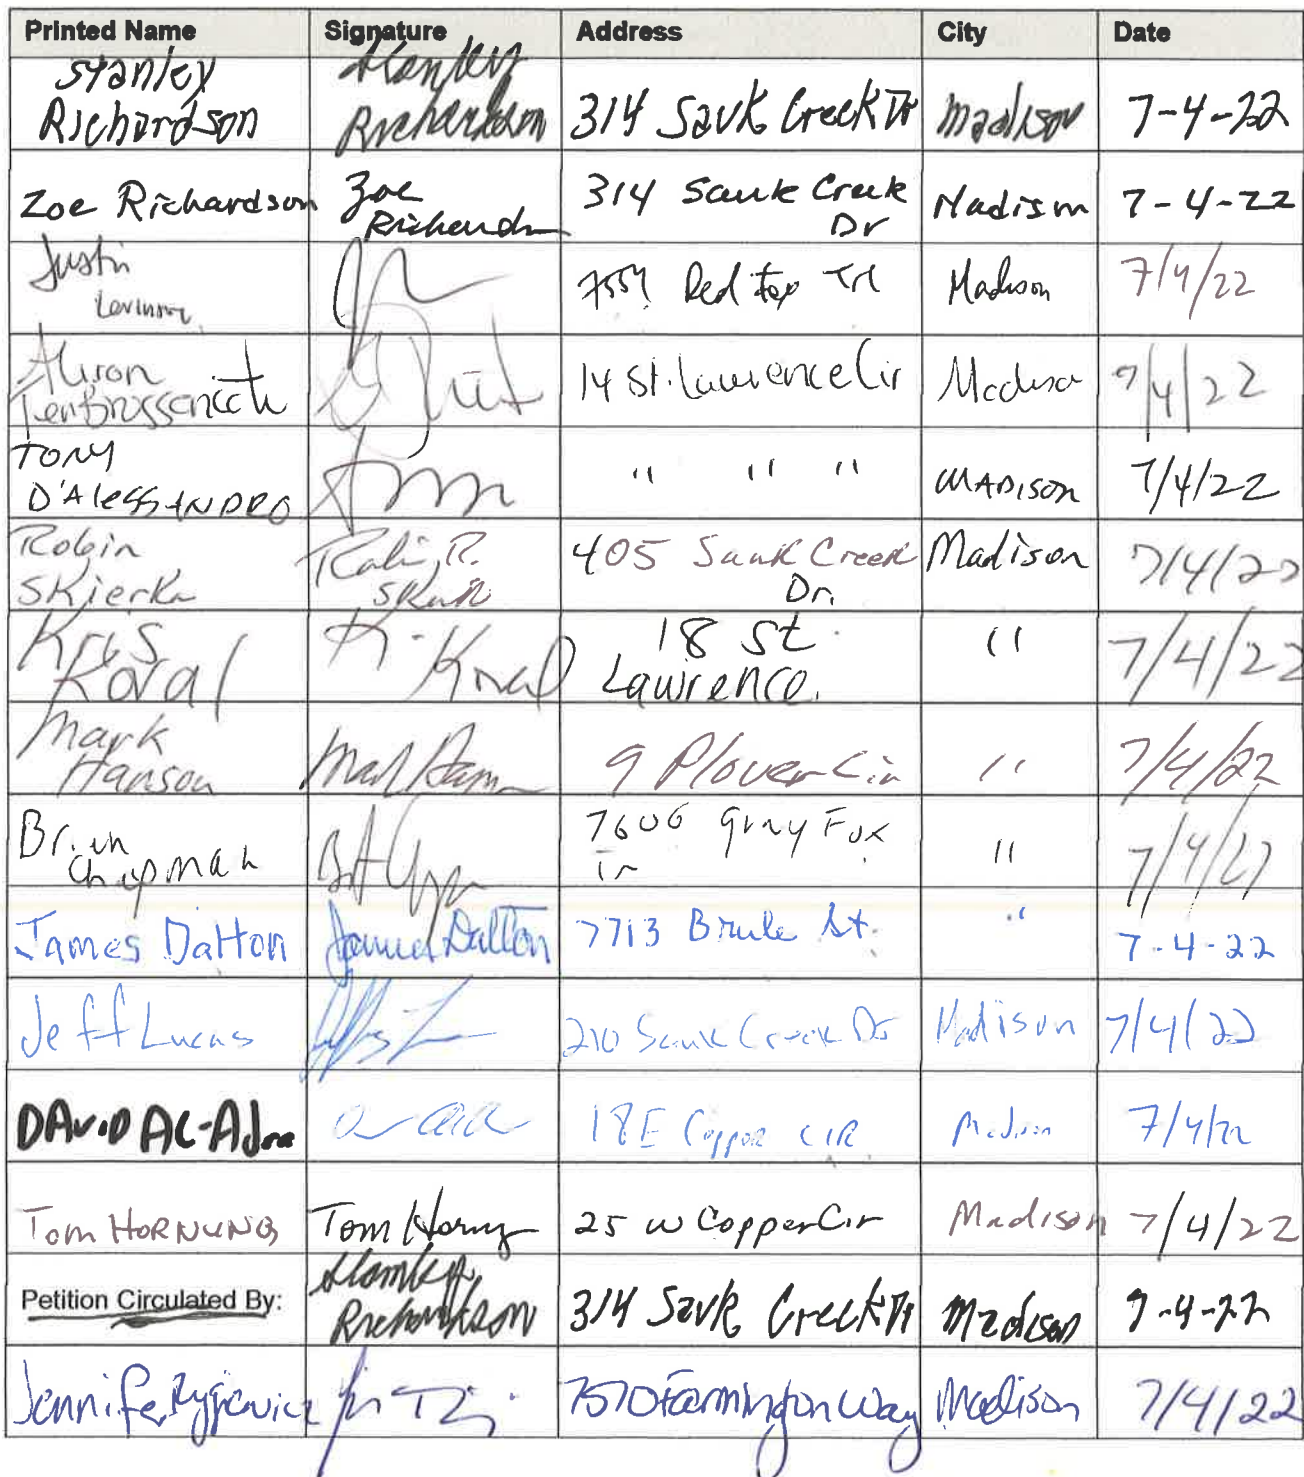 Printed Name Signature Address City Date
Stanley Richardson Stanley Richardson 314 Sauk Creek Dr Madison 7-4-22
Zoe Richardson Zoe Richardson 314 Sauk Creek Dr Madison 7-4-22
Justin Red Fox Trl Madison 7/4/22
14 St. Lawrence Cir Madison 7/4/22
TONY D'ALESSANDRO " " " MADISON 7/4/22
Robin Skierka Robin R. 405 Sauk Creek Dr. Madison 7/4/22
Kris Koval K. Koval 18 St Lawrence. " 7/4/22
Mark Hanson Mark Hanson 9 Plover Cir " 7/4/22
Brian Chapman 7606 Gray Fox Tr " 7/4/22
James Dalton James Dalton 7713 Brule St. " 7-4-22
Jeff Lucas 210 Sauk Creek Dr Madison 7/4/22
DAVID 18 E Copper CIR Madison 7/4/22
Tom HORNUNG Tom Hornung 25 W Copper Cir Madison 7/4/22
Petition Circulated By: Stanley Richardson 314 Sauk Creek Dr Madison 7-4-22
Jennifer 7570 Farmington Way Madison 7/4/22